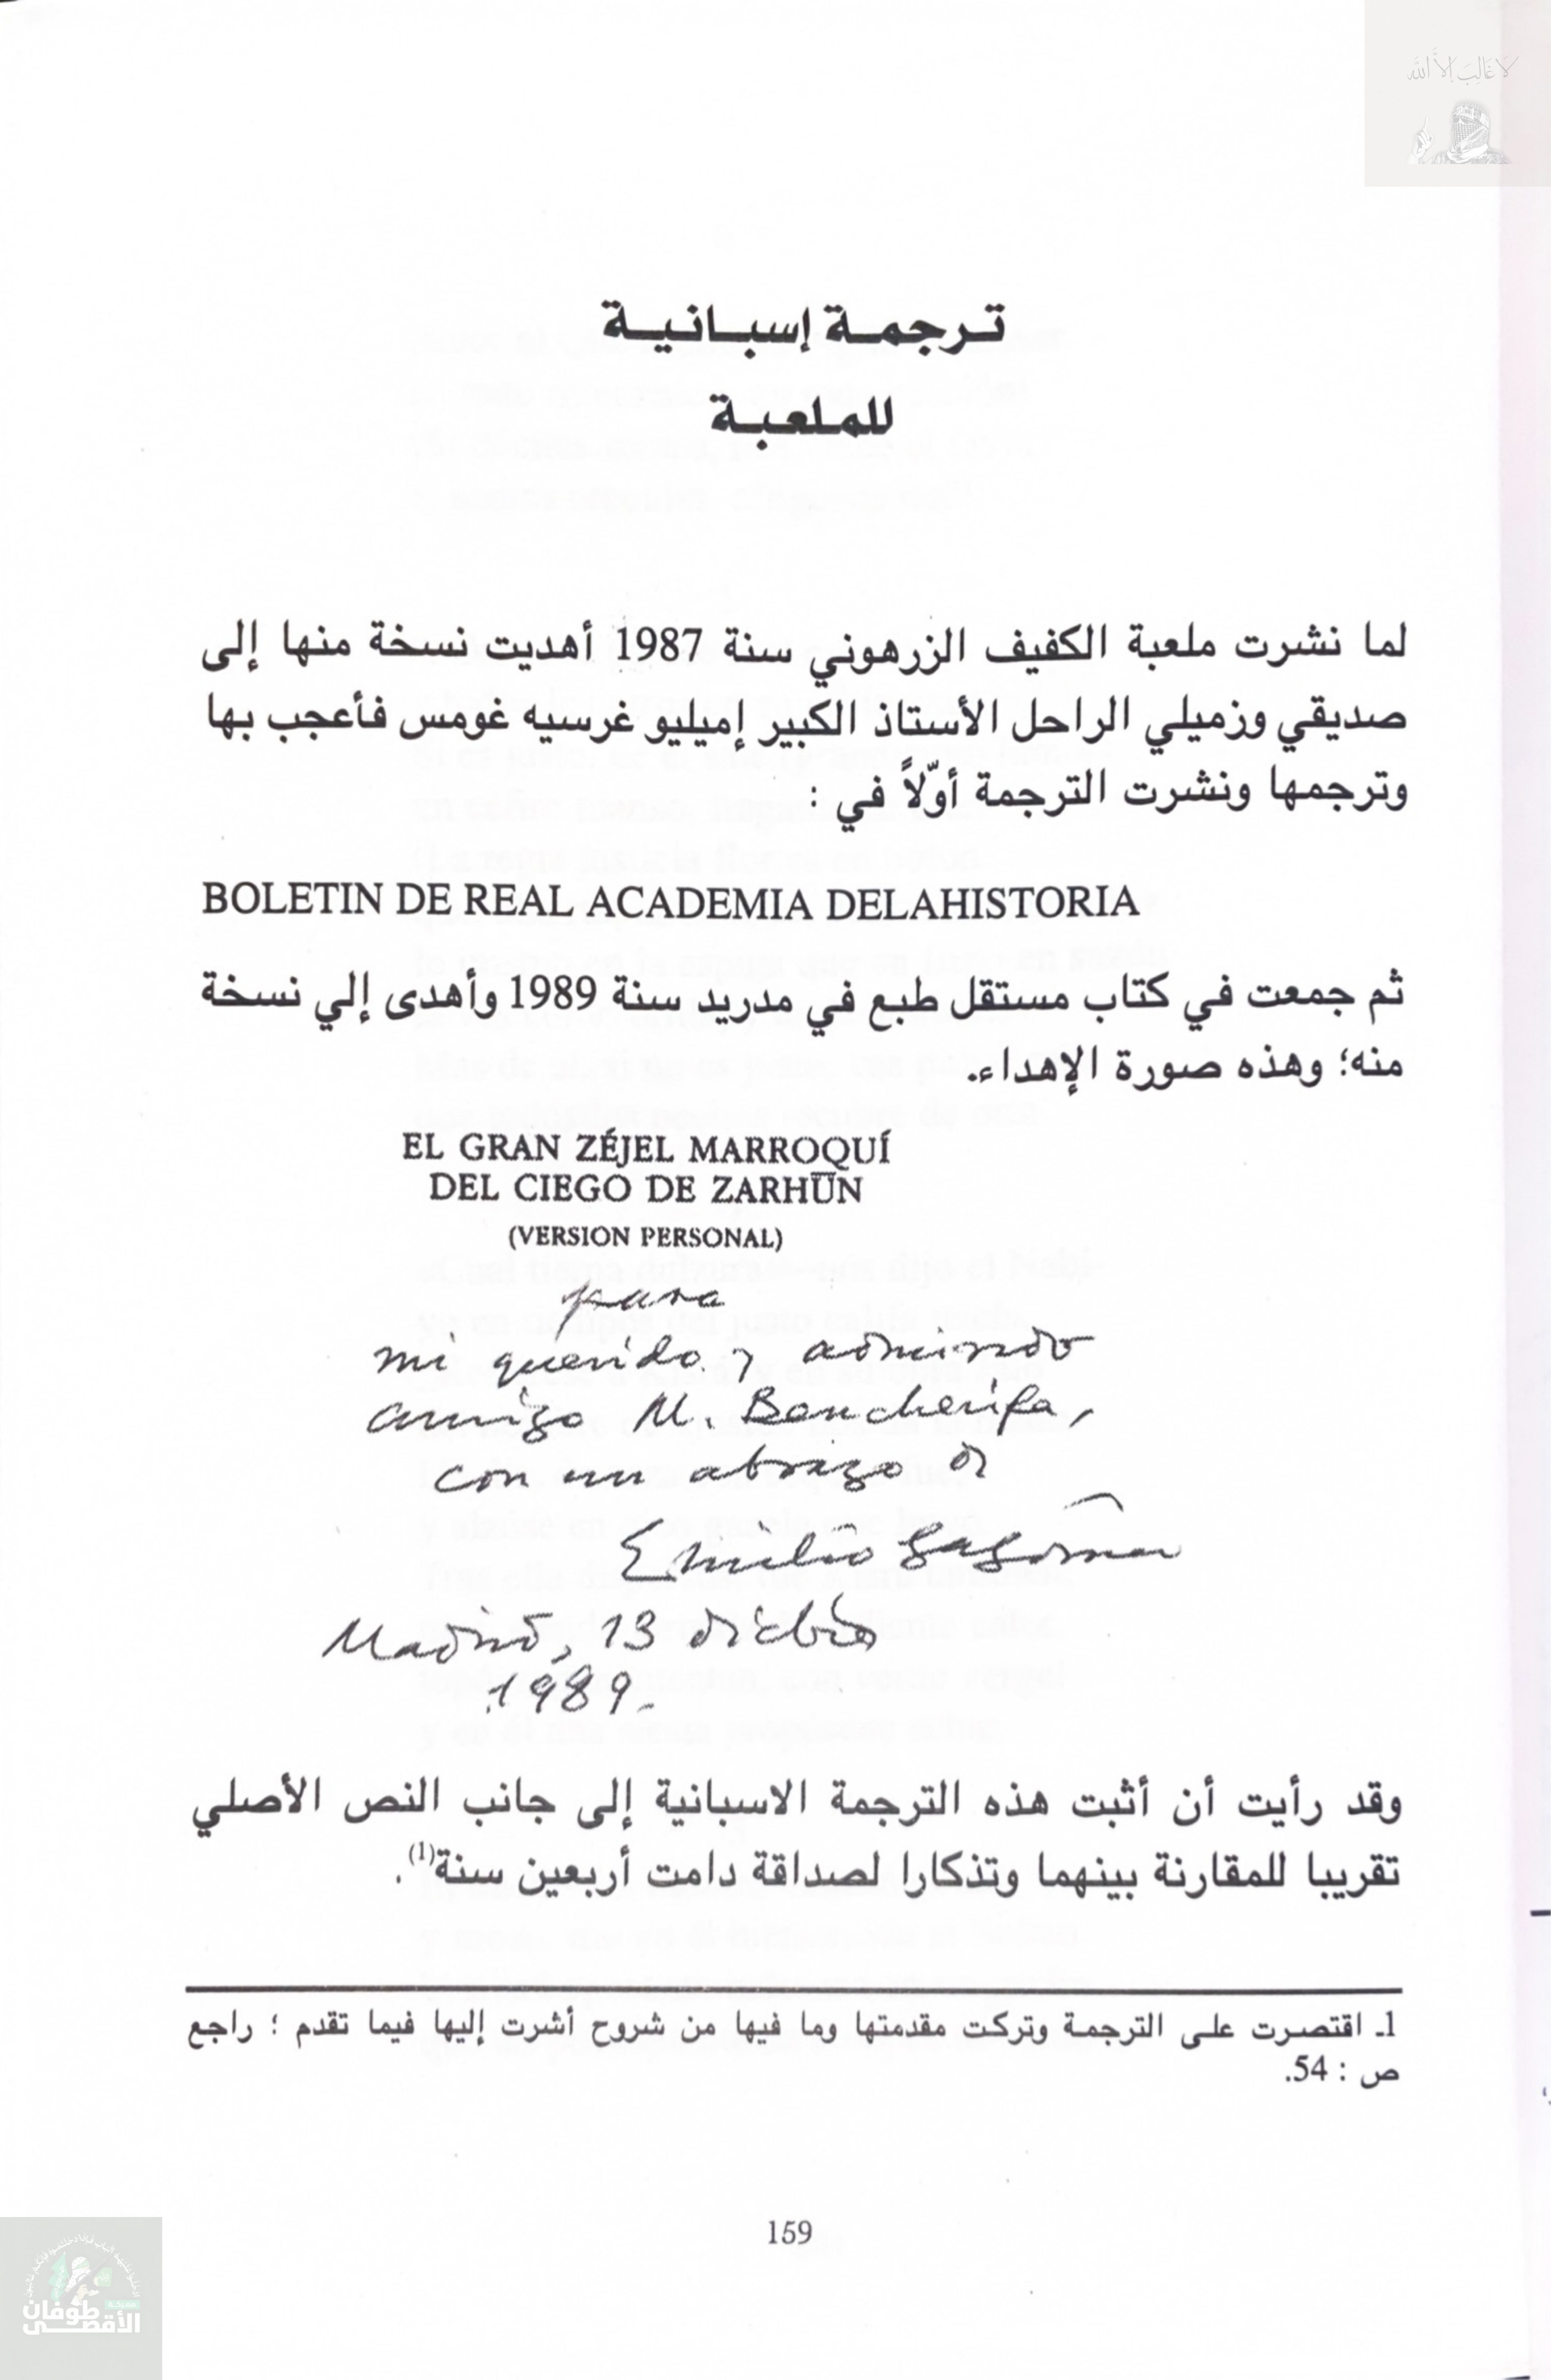 لا غالب إلا الله
ترجمة إسبانية
للملعبة
لما نشرت ملعبة الكفيف الزرهوني سنة 1987 أهديت نسخة منها إلى
صديقي وزميلي الراحل الأستاذ الكبير إميليو غرسيه غومس فأعجب بها
وترجمها ونشرت الترجمة أوّلاً في :
BOLETIN DE REAL ACADEMIA DELAHISTORIA
ثم جمعت في كتاب مستقل طبع في مدريد سنة 1989 وأهدى إلي نسخة
منه؛ وهذه صورة الإهداء.
EL GRAN ZÉJEL MARROQUÍ
DEL CIEGO DE ZARHŪN
(VERSION PERSONAL)
para
mi querido y admirado
amigo M. Bencherifa,
con un abrazo de
Emilio
Madrid, 13 dicbre
1989.-
وقد رأيت أن أثبت هذه الترجمة الاسبانية إلى جانب النص الأصلي
تقريبا للمقارنة بينهما وتذكارا لصداقة دامت أربعين سنة(1).
1ـ اقتصرت على الترجمة وتركت مقدمتها وما فيها من شروح أشرت إليها فيما تقدم ؛ راجع
ص : 54.
159
معركة
طوفان
الأقصى